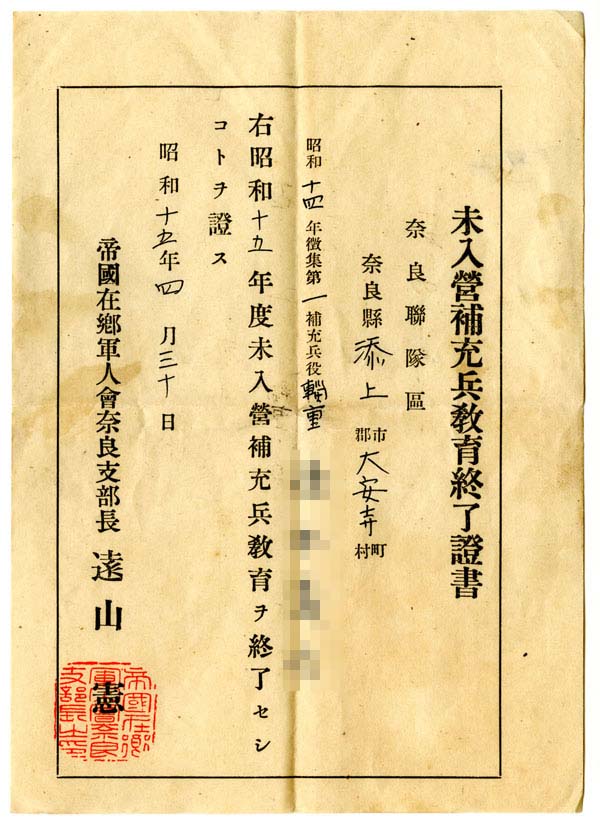 未入營補充兵敎育終了證書
奈良聯隊區
奈良縣添上市郡大安寺町村
昭和十四年徵集第一補充兵役輜重
右昭和十五年度未入營補充兵敎育ヲ終了セシ
コトヲ證ス
昭和十五年四月三十日
帝國在鄕軍人會奈良支部長 遠山憲
帝國在鄕
軍人會奈良
支部長之印